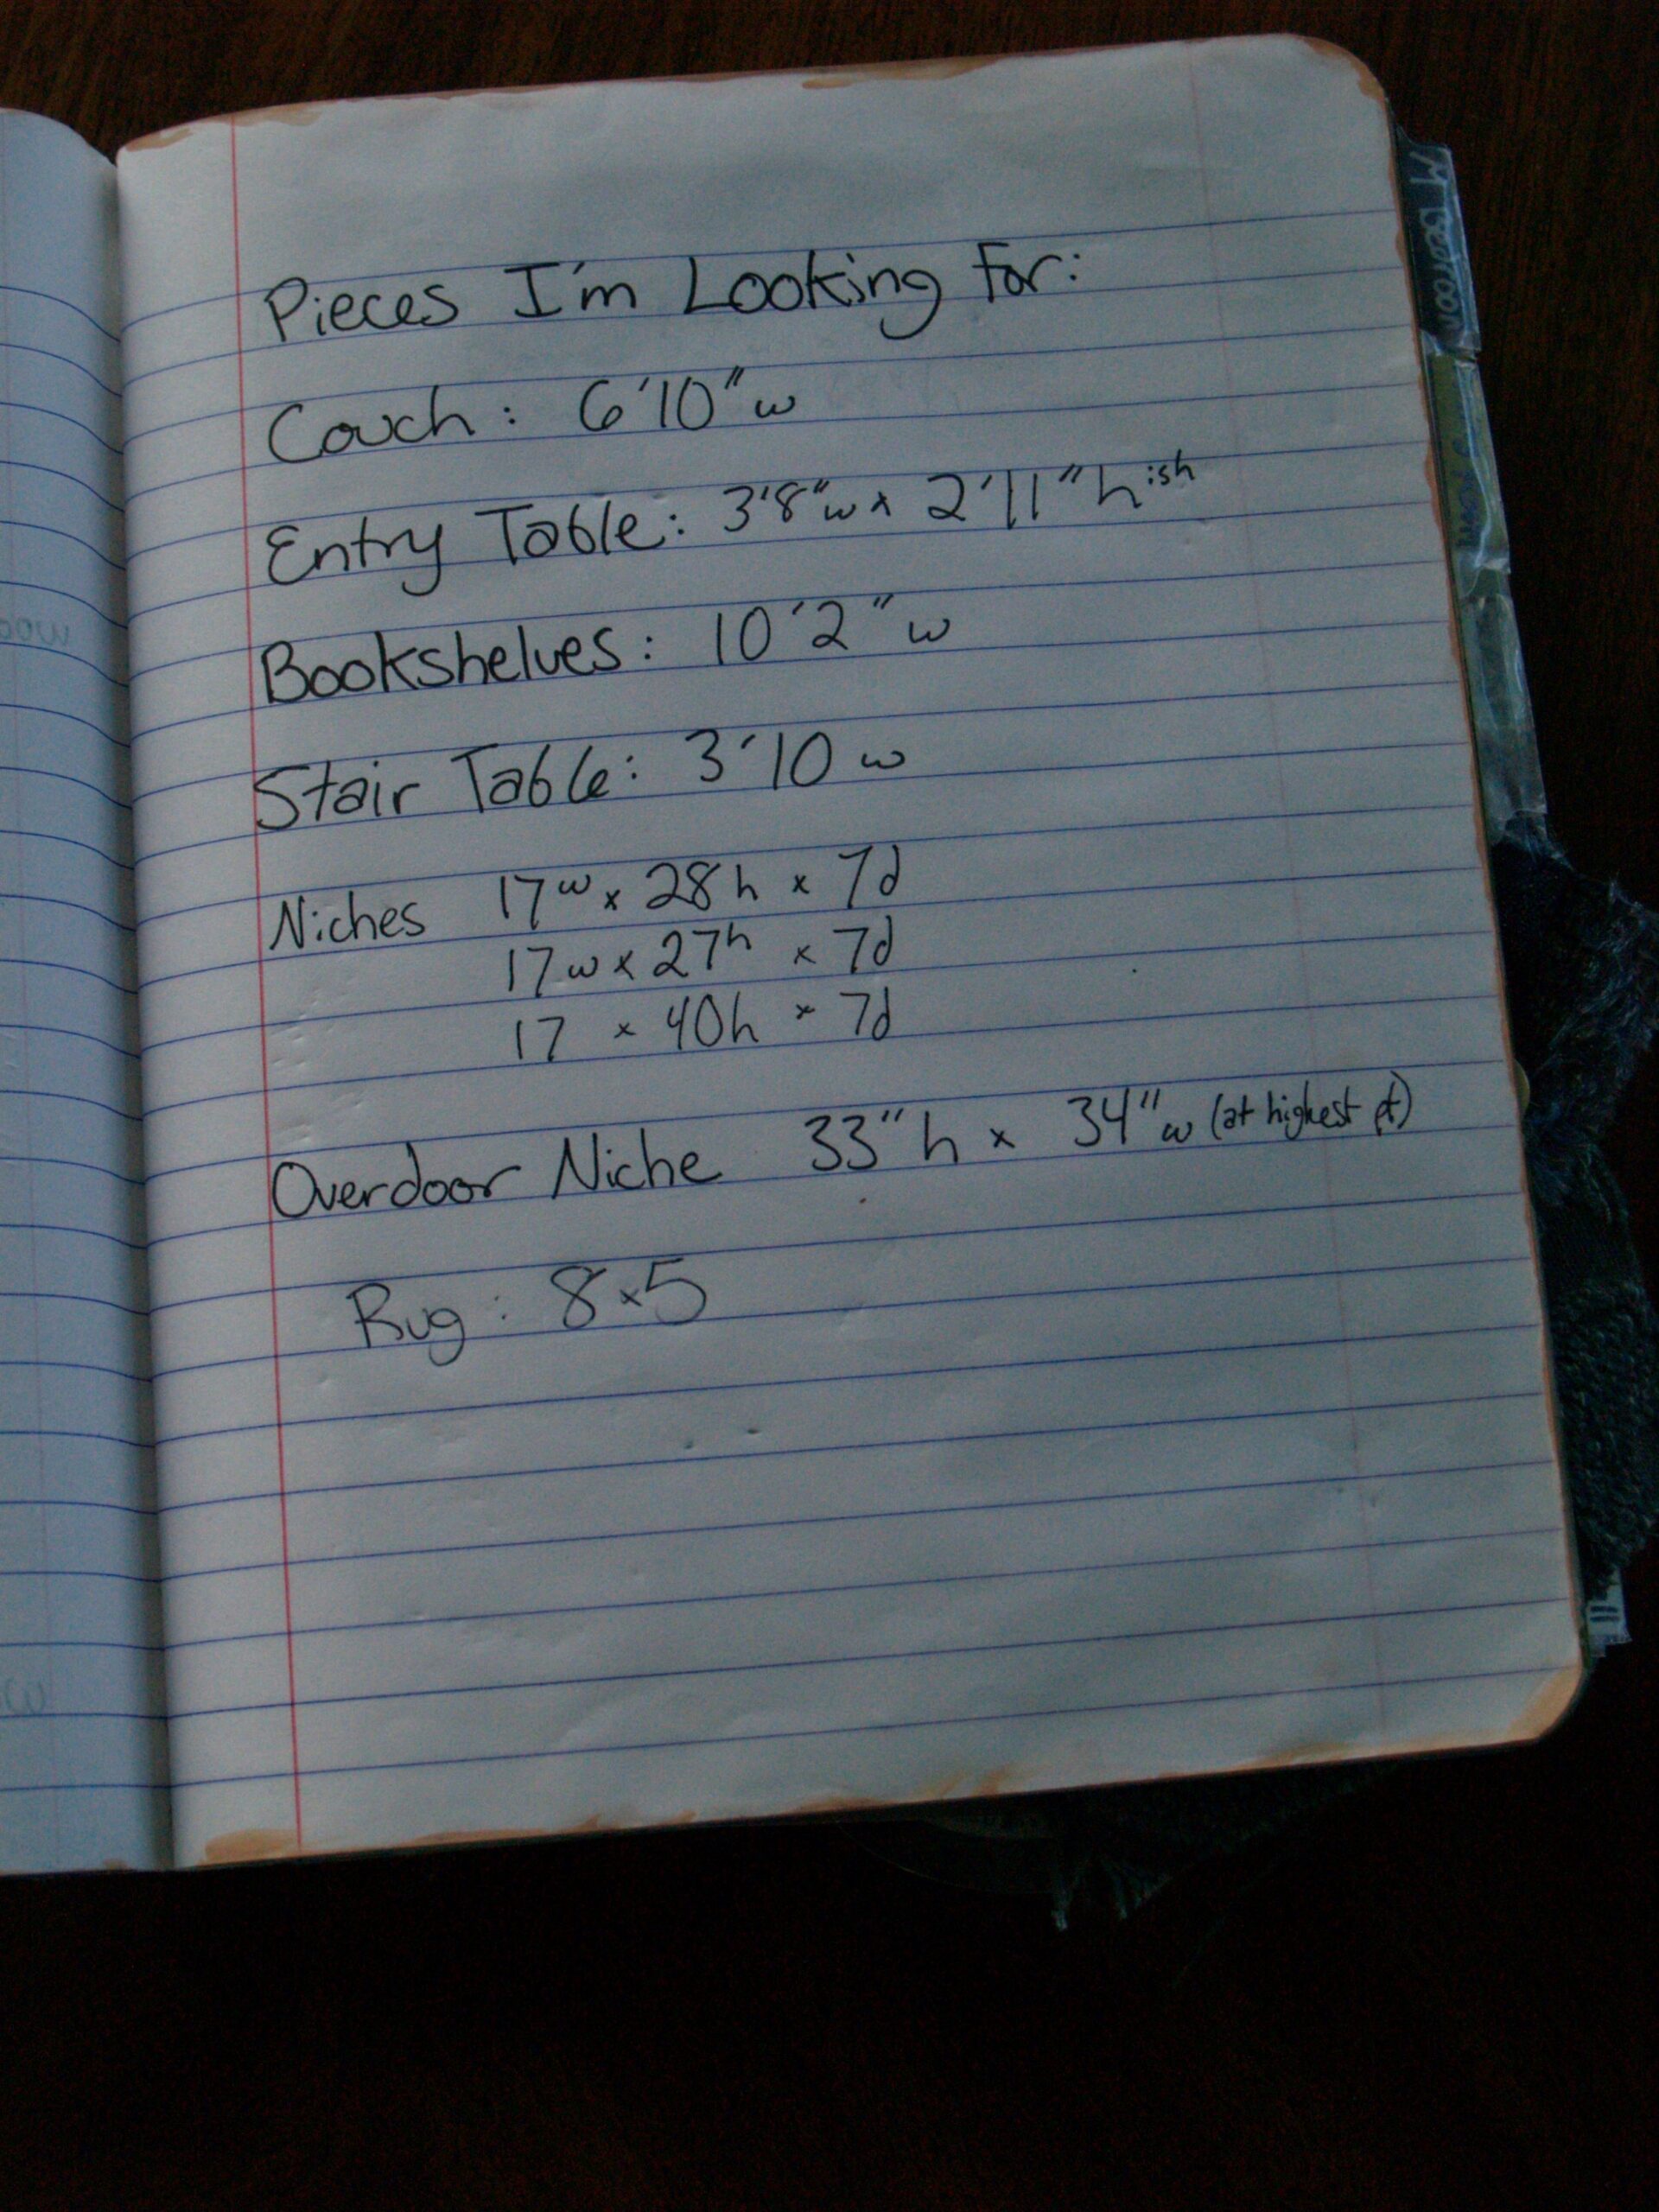 Pieces I'm Looking For:
Couch: 6'10" w
Entry Table: 3'8"w x 2'11" h ish
Bookshelves: 10'2" w
Stair Table: 3'10 w
Niches 17w x 28h x 7d
17w x 27h x 7d
17 x 40h x 7d
Overdoor Niche 33"h x 34"w (at highest pt)
Rug: 8x5
M Bedroom